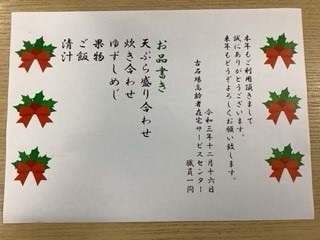 本年もご利用頂きまして
誠にありがとうございます。
来年もどうぞよろしくお願い致します。
令和三年十二月十六日
古石場高齢者在宅サービスセンター
職員一同
お品書き
天ぷら盛り合わせ
炊き合わせ
ゆずしめじ
果物
ご飯
清汁